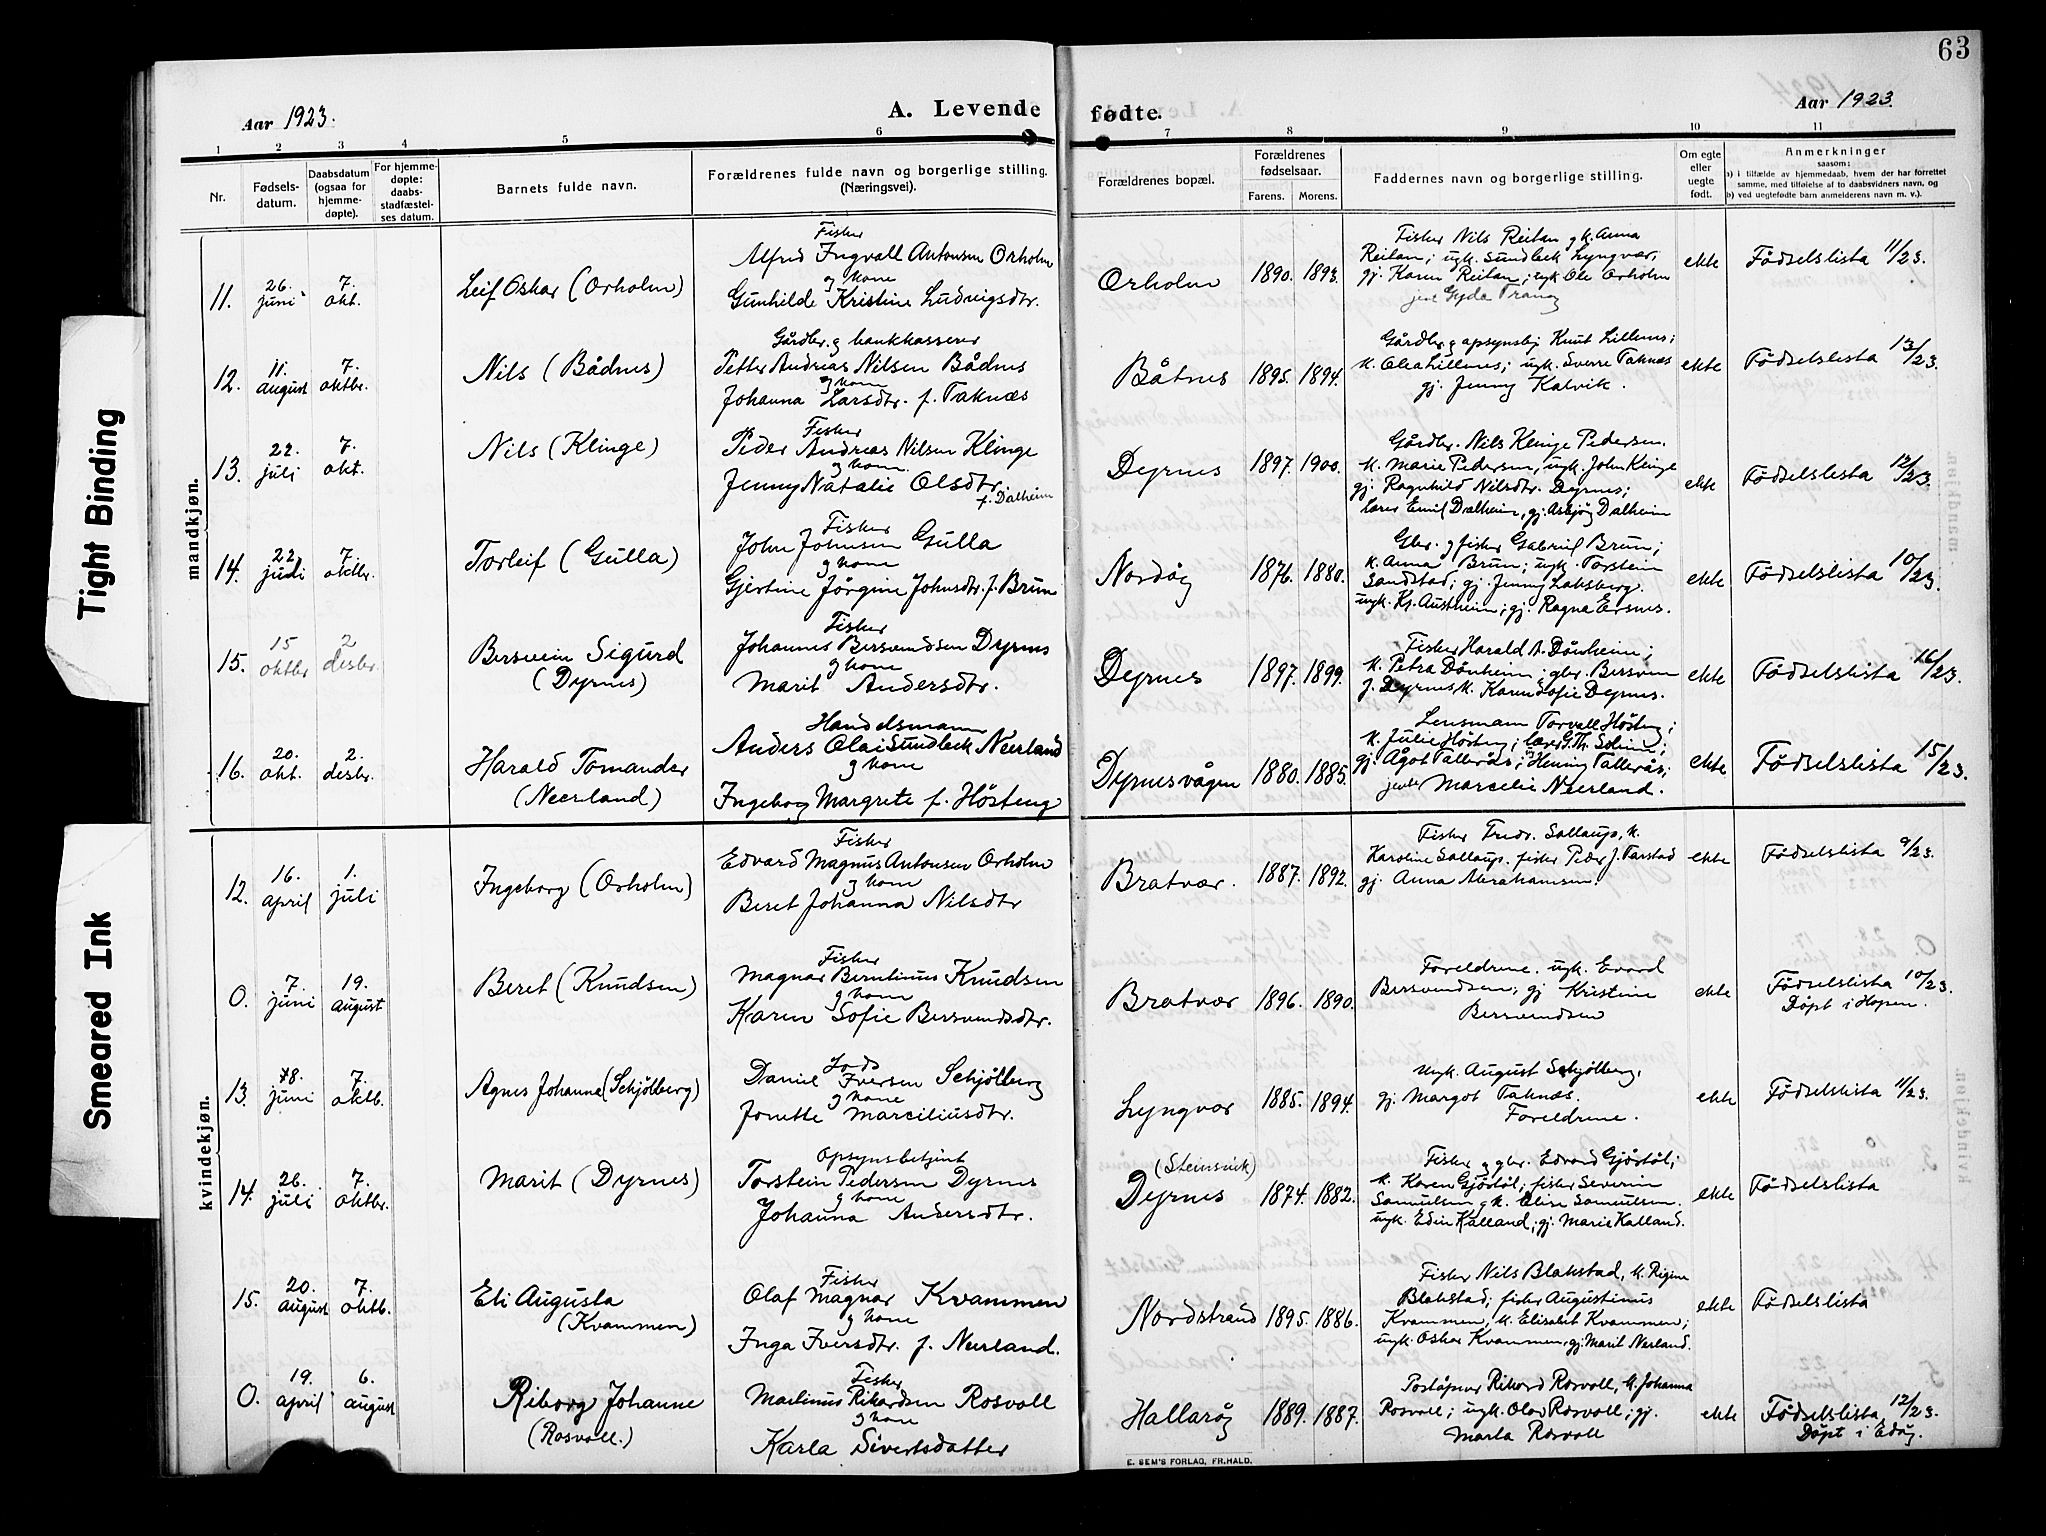 63
Aar 1923.
A. Levende
fødte.
Aar 1923.
1 2 3 4 5 6 7 8 9 10 11
Nr.
Fødsels-
datum.
Daabsdatum
(ogsaa for
hjemme-
døpte).
For hjemme-
døpte:
daabs-
stadfæstel-
ses datum.
Barnets fulde navn.
Forældrenes fulde navn og borgerlige stilling.
(Næringsvei).
Forældrenes bopæl.
Forældrenes
fødselsaar.
Farens. Morens.
Faddernes navn og borgerlige stilling.
Om egte
eller
uegte
født.
Anmerkninger
saasom:
a) i tilfælde av hjemmedaab, hvem der har forrettet
samme, med tilføielse af to daabsvidners navn, og
b) ved uegtefødte barn anmelderens navn m. v.).
mandkjøn.
11.
26.
juni
7.
okt.
Leif Oskar (Orholm)
Fisker
Alfred Ingvall Antonsen Orholm
og kone
Gunhilde Kristine Ludvigsdtr.
Orholm
1890. 1893.
Fisker Nils Reitan og k. Anna
Reitan; ugk. Sundbeck Lyngvær,
gj. Karen Reitan; ugk Ole Orholm
jente Gyda Tranø
ekte
Fødselslista 11/23.
12.
11.
august
7.
oktbr.
Nils (Bådnes)
Gårdbr. og bankkasserer
Petter Andreas Nilsen Bådnes
og kone
Johanna Larsdtr. f. Taknæs
Båtnes
1895. 1894.
Gårdbr. og opsynsbtj Knut Lillenes;
k. Olea Lillenes; ugk. Sverre Taknæs
gj. Jenny Kalvik.
ekte
Fødselslista 13/23.
13.
22.
juli
7.
okt.
Nils (Klinge)
Fisker
Peder Andreas Nilsen Klinge
og kone
Jenny Natalie Olsdtr.
f. Dalheim
Dyrnes
1897. 1900.
Gårdbr. Nils Klinge Pedersen.
k. Marie Pedersen; ugk. John Klinge
gj. Ragnhild Nilsdtr. Dyrnes;
Lærer Emil Dalheim, gj. Asbjørg Dalheim
ekte
Fødselslista 12/23.
14.
22.
juli
7.
oktbr.
Torleif (Gulla)
Fisker
John Johnsen Gulla
og kone
Gjertine Jørgine Johnsdtr. f. Brun
Nordøy
1876. 1880.
Gbr. og fisker Gabriel Brun;
k. Anna Brun; ugk. Torstein
Sandstad; gj. Jenny Laksberg.
ugk. Kr. Austheim; gj. Ragna Ersnes.
ekte
Fødselslista 10/23.
15.
15
oktbr
2
desbr.
Bersvein Sigurd
(Dyrnes)
Fisker
Johannes Bersvendsen Dyrnes
og kone
Marit Andersdtr.
Dyrnes
1897. 1899.
Fisker Harald A. Dønheim;
k. Petra Dønheim; gbr. Bersven
J. Dyrnes k. Karen Sofie Dyrnes.
ekte
Fødselslista 16/23.
16.
20.
okt.
2.
desbr.
Harald Tomander
(Neerland)
Handelsmann
Anders Olai Sundbeck Neerland
og kone
Ingeborg Margrete f. Høsteng
Dyrnesvågen
1880. 1885.
Lensmann Torvall Høsteng;
k. Julie Høsteng; lærer G. Th. Solheim;
gj. Ågot Tallerås; Hening Tallerås;
jente Marcelie Neerland.
ekte
Fødselslista 15/23.
kvindekjøn.
12.
16.
april
1.
juli
Ingeborg (Orholm)
Fisker
Edvard Magnus Antonsen Orholm
og kone
Beret Johanna Nilsdtr
Bratvær.
1887. 1892.
Fisker Fredr. Sollaup, k.
Karoline Sollaup. fisker Peder J. Farstad
gj. Anna Abrahamsen.
ekte
Fødselslista 9/23.
0.
7.
juni
19.
august
Beret (Knudsen)
Fisker
Magnar Berntinus Knudsen
og kone
Karen Sofie Bersvendsdtr.
Bratvær
1896. 1890.
Foreldrene. ugk. Evard
Bersvendsen; gj Kristine
Bersvendsen
ekte
Fødselslista 10/23.
Døpt i Hopen.
13.
18.
juni
7.
oktb.
Agnes Johanna (Schjølberg)
Daniel Iversen Schjølberg
og kone
Jonette Marciliusdtr.
Lyngvær
1885. 1894.
Ungk. August Schjølberg,
gj. Margot Taknæs.
Foreldrene.
ekte
Fødselslista 11/23.
14.
26.
juli
7.
oktbr.
Marit (Dyrnes)
Opsynsbetjent
Torstein Pedersen Dyrnes
og kone
Johanna Andersdtr.
(Steinsvik)
Dyrnes
1874. 1882.
Fisker og gbr. Edvard Gjøstøl;
k. Karen Gjøstøl; fisker Severin
Samuelsen og k. Elise Samuelsen.
ugk. Edin Kalland; gj. Marie Kalland.
ekte
Fødselslista
15.
20.
august
7.
oktb.
Eli Augusta
(Kvammen)
Fisker
Olaf Magnar Kvammen
og kone
Inga Iversdtr. f. Neerland.
Nordstrand
1895. 1886.
Fisker Nils Blakstad, k. Regine
Blakstad; fisker Augustinus
Kvammen, k. Elisabet Kvammen;
ugk. Oskar Kvammen, gj. Marit Nerland.
ekte
Fødselslista
0.
19.
april
6.
august
Riborg Johanne
(Rosvoll.)
Fisker
Martinus Rikardsen Rosvoll
og kone
Karla Sivertsdatter
Hallarøy
1889. 1887.
Poståpner Rikard Rosvoll, k. Johanna
Rosvoll; ugk. Olav Rosvoll; gj.
Marla Rosvoll
ekte
Fødselslista 12/23.
Døpt i Edøy.
E. SEM'S FORLAG, FR.HALD.
Tight Binding
Smeared Ink